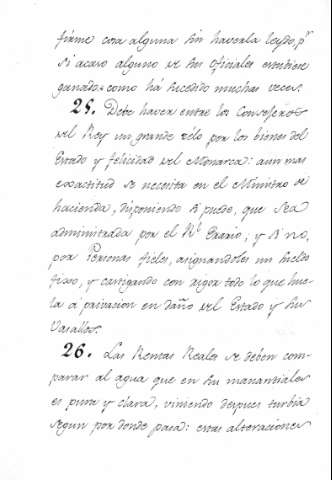 firme cosa alguna sin haverla leydo, p.r
si acaso alguno de sus oficiales estubiese
ganado: como há sucedido muchas veces.
25. Debe haver entre los Consegeros
del Rey un grande zélo por los bienes del
Estado y felicidad del Monarca: aun mas
exactitud se necesita en el Ministro de
hacienda, disponiendo si puede, que sea
administrada por el R.l Erario; y si no,
por Personas fieles, asignandoles un sueldo
fixo, y castigando con rigor todo lo que hue-
la á privacion en daño del Estado y sus
Vasallos.
26. Las Rentas Reales se deben com-
parar al agua que en su manantial
es pura y clara, viniendo despues turbia
segun por donde pasa: estas alteraciones